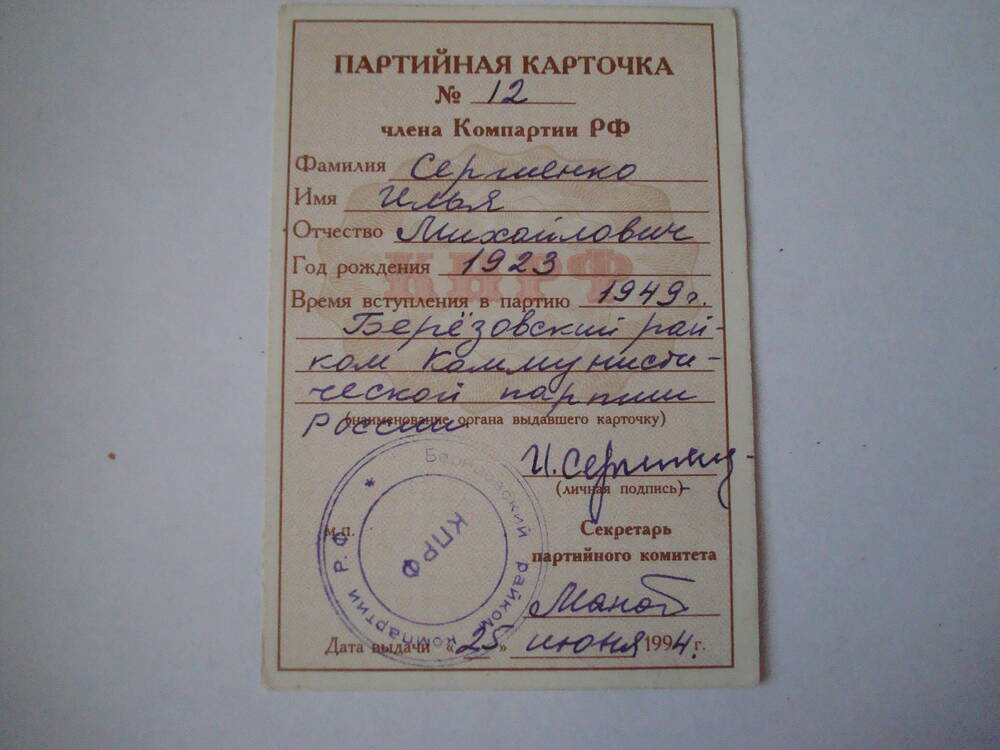 ПАРТИЙНАЯ КАРТОЧКА
№ 12
члена Компартии РФ
Фамилия Сергиенко
Имя Илья
Отчество Михайлович
КПРФ
Год рождения 1923
Время вступления в партию 1949 г.
Берёзовский рай-
ком Коммунисти-
ческой партии
России
(наименование органа выдавшего карточку)
(личная подпись)
М.П.
Секретарь
партийного комитета
Берёзовский райком компартии Р.Ф. *
КПРФ
Дата выдачи «25» июня 1994 г.